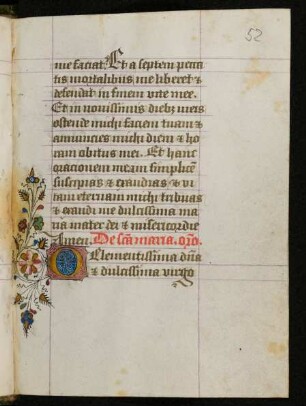 52
me faciat. Et a septem pecca
tis mortalibus me liberet &
defendat in finem vite mee.
Et in nouissimis diebus meis
ostende michi faciem tuam &
annuncies michi diem & ho
ram obitus mei. Et hanc
orationem meam simplicē
suscipias & exaudias & vi
tam eternam michi tribuas
& exaudi me dulcissima ma
ria mater dei & misericordie
Amen. De scā maria. orō.
O Clementissima dn̄a
& dulcissima virgo